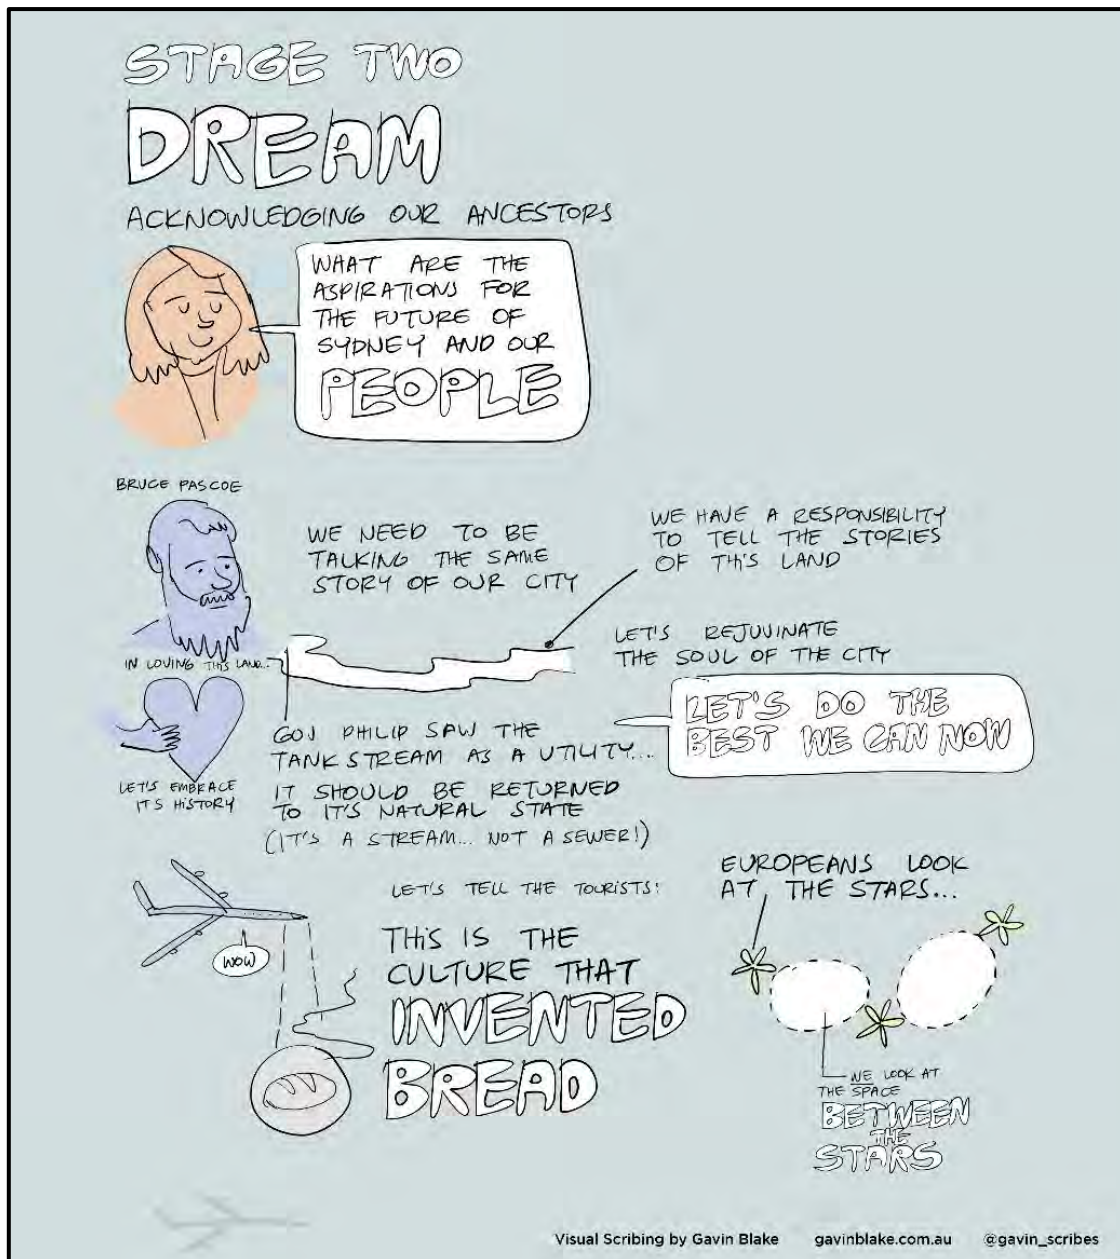 STAGE TWO
DREAM
ACKNOWLEDGING OUR ANCESTORS
WHAT ARE THE
ASPIRATIONS FOR
THE FUTURE OF
SYDNEY AND OUR
PEOPLE
BRUCE PASCOE
WE NEED TO BE
TALKING THE SAME
STORY OF OUR CITY
WE HAVE A RESPONSIBILITY
TO TELL THE STORIES
OF THIS LAND
IN LOVING THIS LAND...
LET'S REJUVINATE
THE SOUL OF THE CITY
LET'S DO THE
BEST WE CAN NOW
LET'S EMBRACE
ITS HISTORY
GOV PHILIP SAW THE
TANK STREAM AS A UTILITY...
IT SHOULD BE RETURNED
TO IT'S NATURAL STATE
(IT'S A STREAM... NOT A SEWER!)
WOW
LET'S TELL THE TOURISTS!
THIS IS THE
CULTURE THAT
INVENTED
BREAD
EUROPEANS LOOK
AT THE STARS...
WE LOOK AT
THE SPACE
BETWEEN
THE
STARS
Visual Scribing by Gavin Blake gavinblake.com.au @gavin_scribes